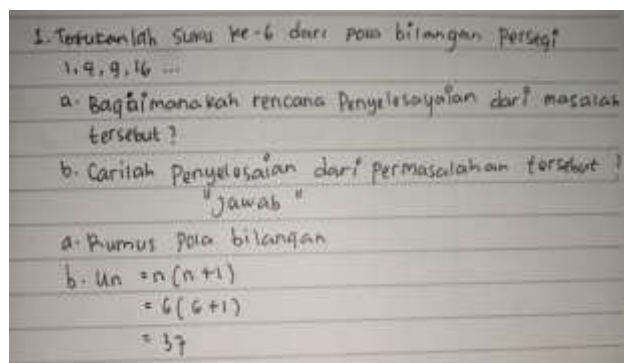 1. Tentukanlah suku ke-6 dari pola bilangan persegi
1, 4, 9, 16 ...
a. Bagaimanakah rencana Penyelesayaian dari masalah
tersebut ?
b. Carilah Penyelesaian dari Permasalahan tersebut !
"Jawab"
a. Rumus Pola bilangan
b. Un = n (n+1)
= 6 (6+1)
= 37